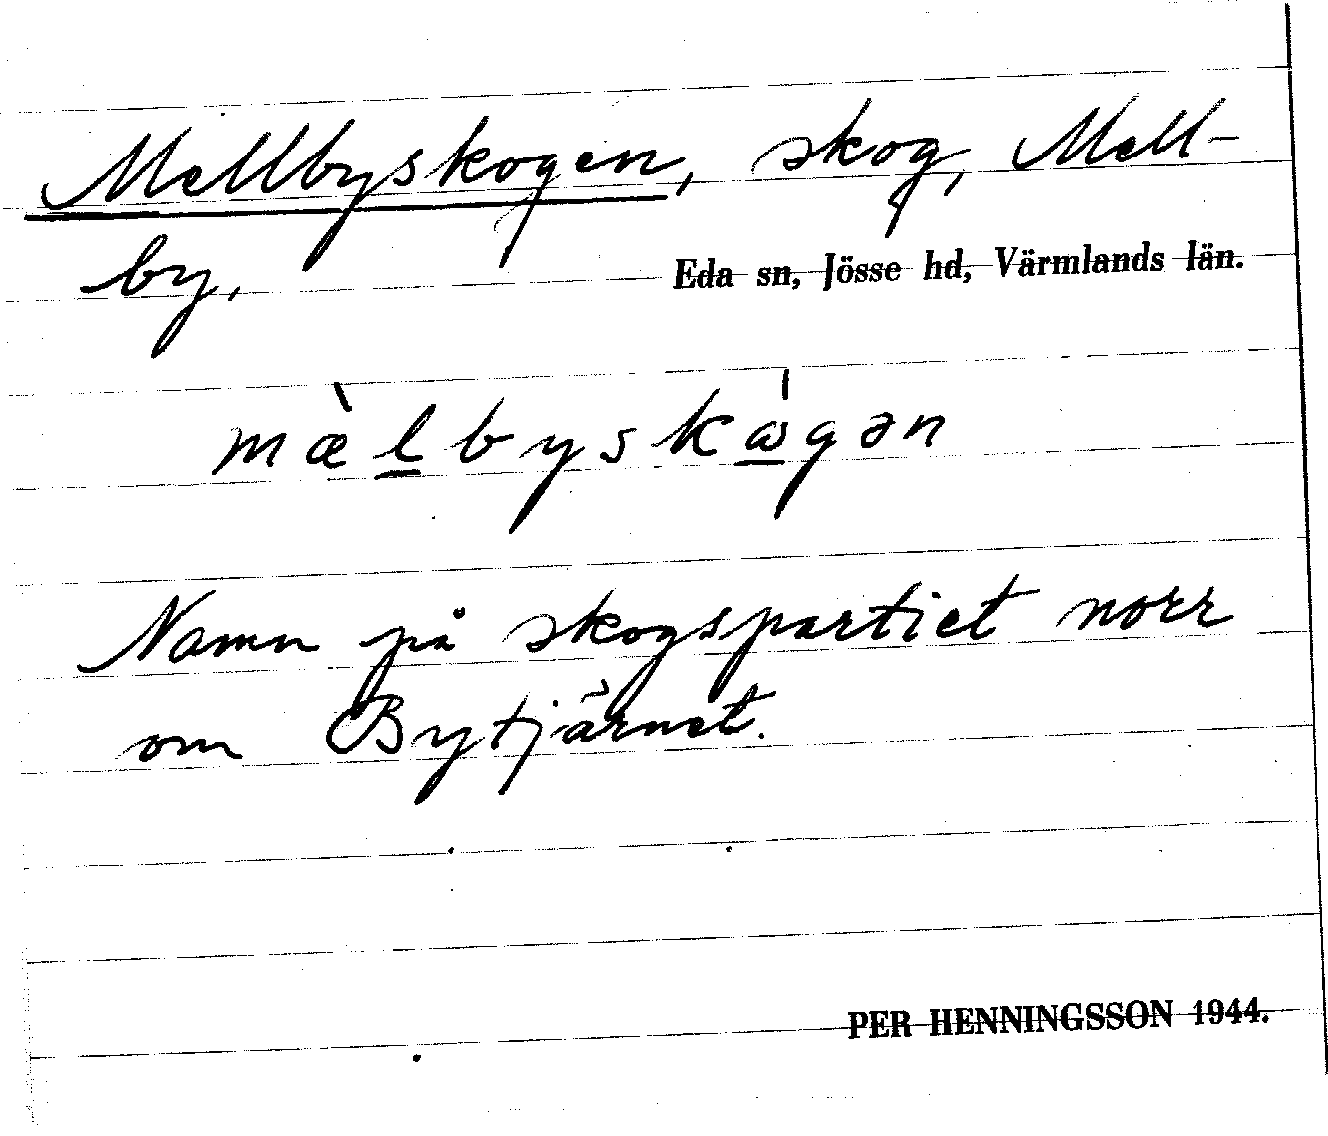 Mellbyskogen, skog, Mell-
by, Eda sn, Jösse hd, Värmlands län.
mæ̀lbyskὼgən
Namn på skogspartiet norr
om Bytjärnet.
PER HENNINGSSON 1944.